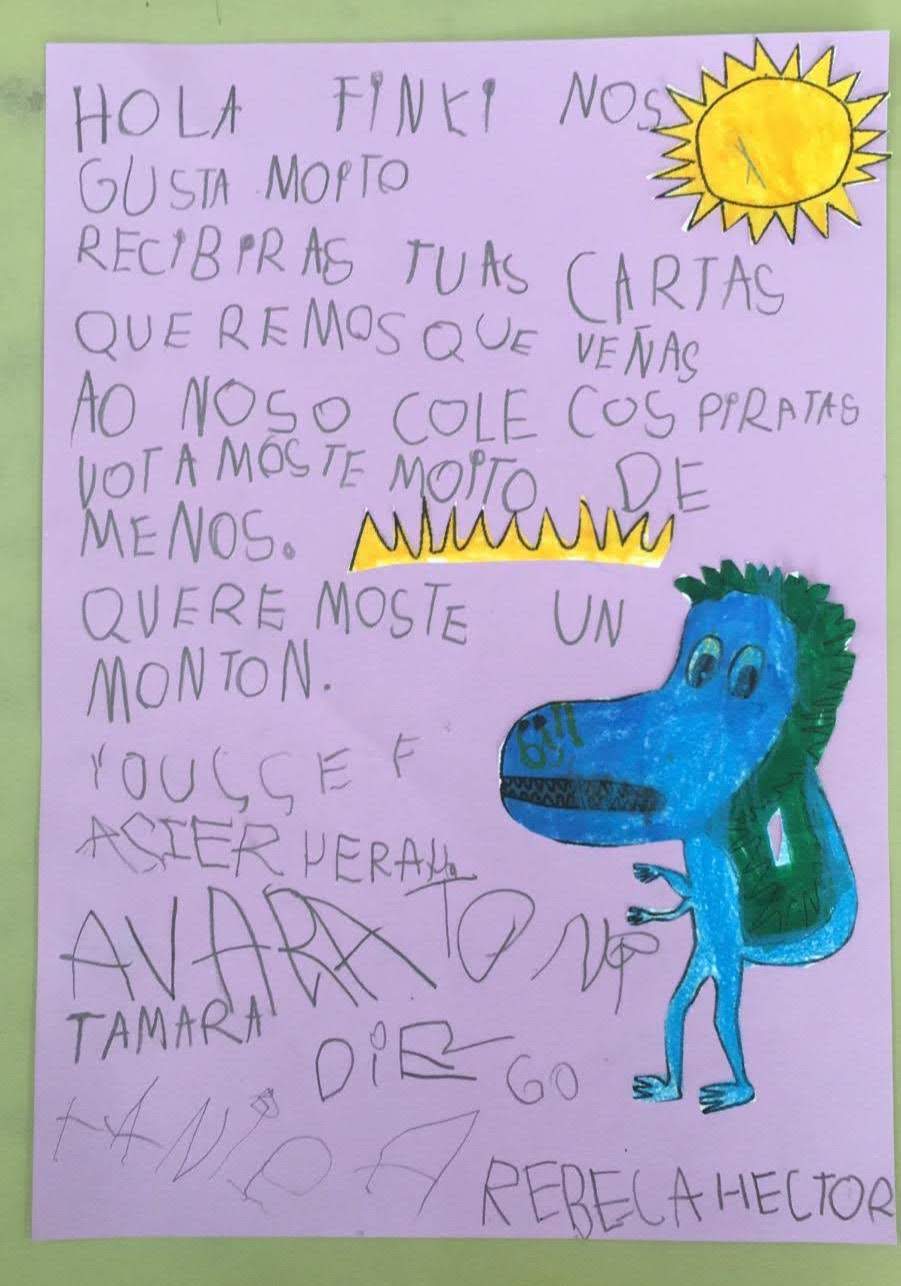 HOLA FINKI NOS
GUSTA MOITO
RECIBIRAS TUAS CARTAS
QUEREMOS QUE VEÑAS
AO NOSO COLE COS PIRATAS
VOTAMOSTE MOITO DE
MENOS.
QUEREMOSTE UN
MONTON.
bill
YOUÇÇEF
ASIER
TAMARA
DIEGO
REBECA HECTOR